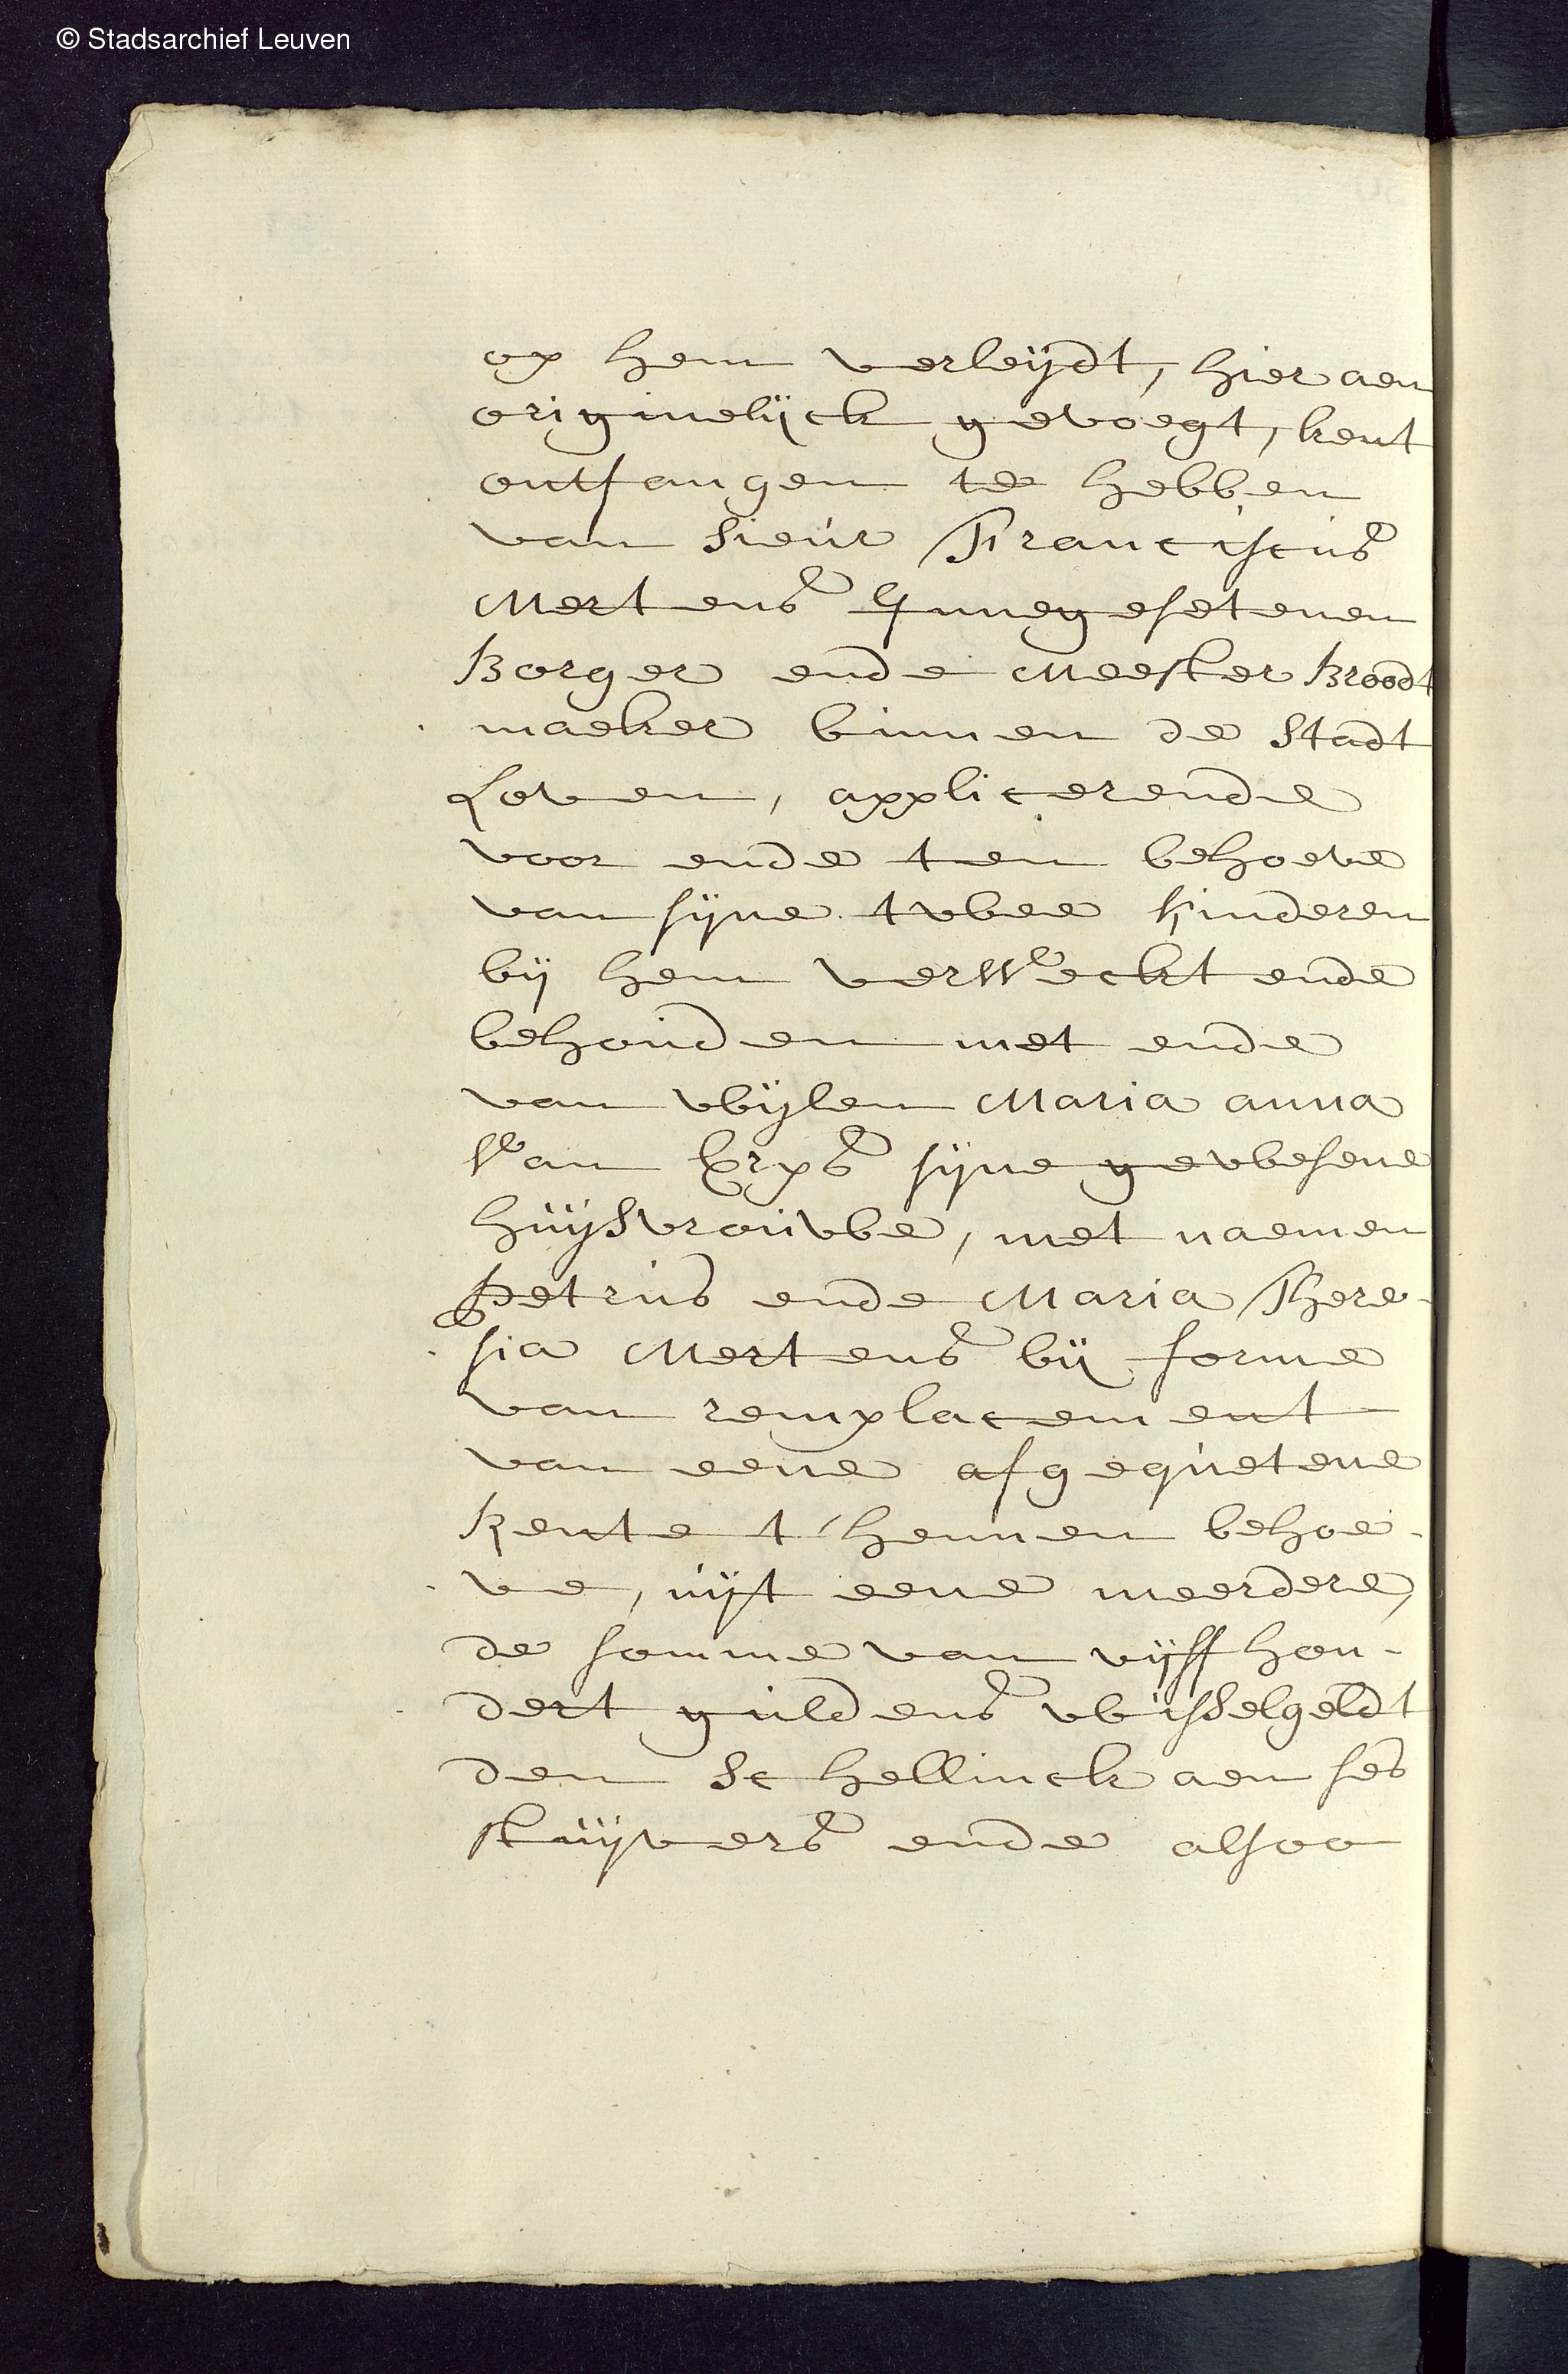 © Stadsarchief Leuven
op hem verleijdt, hier aen
originelijck gevoegt, kent
ontfangen te hebben
van Sieur Franciscus
Mertens Innegesetenen
Borger ende Meester Broodt
maeker binnen de Stadt
Loven, applicerende
voor ende ten behoeve
van sijne twee kinderen
bij hem verWeckt ende
behouden met ende
van wijlen Maria anna
Van Erps sijne gewesene
huijsvrouwe, met naemen
Petrus ende Maria There-
sia Mertens bij forme
van remplacement
van eene afgequetene
Rente t'hennen behoe-
ve, uijt eene meerdere,
de somme van vijff hon-
dert guldens wisselgeldt
den Schellinck aen ses
stuijvers ende alsoo